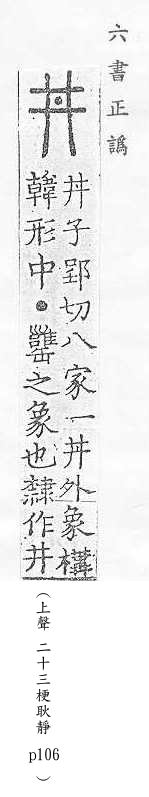 六書正譌
丼
丼子郢切八家一丼外象構
韓形中•䍌之象也隸作井
(上聲 二十三梗耿靜 p106)